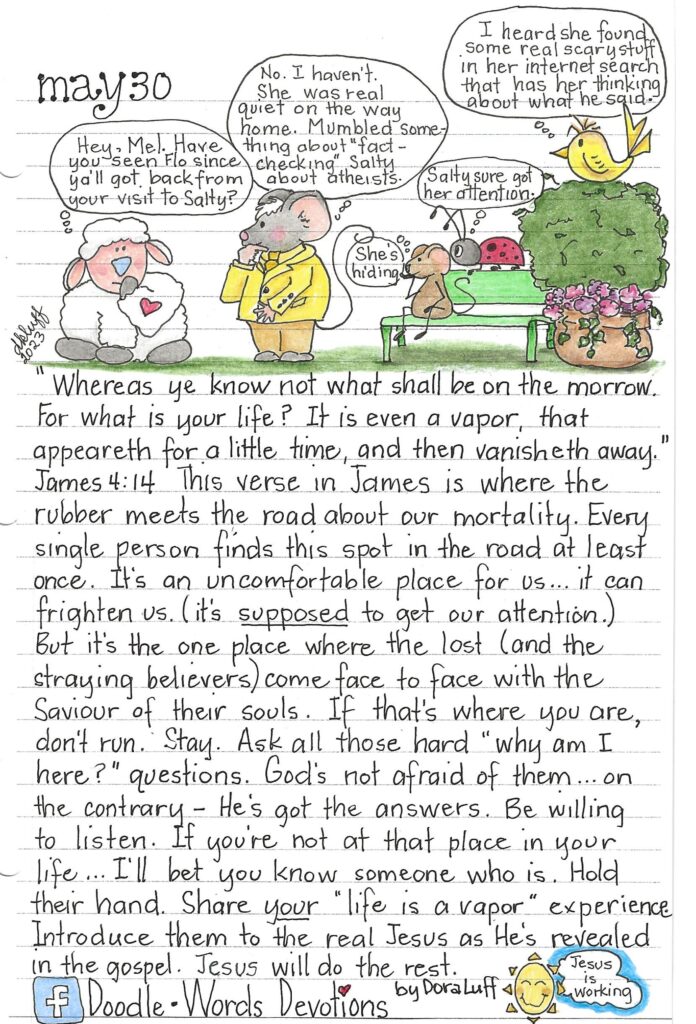 may 30
Hey, Mel. Have
you seen Flo since
ya'll got back from
your visit to Salty?
No. I haven't.
She was real
quiet on the way
home. Mumbled some-
thing about "fact-
checking" Salty
about atheists.
She's
hiding.
Salty sure got
her attention.
I heard she found
some real scary stuff
in her internet search
that has her thinking
about what he said.
dkluff
2023
"Whereas ye know not what shall be on the morrow.
For what is your life? It is even a vapor, that
appeareth for a little time, and then vanisheth away."
James 4:14 This verse in James is where the
rubber meets the road about our mortality. Every
single person finds this spot in the road at least
once. It's an uncomfortable place for us... it can
frighten us. (it's supposed to get our attention.)
But it's the one place where the lost (and the
straying believers) come face to face with the
Saviour of their souls. If that's where you are,
don't run. Stay. Ask all those hard "why am I
here?" questions. God's not afraid of them... on
the contrary - He's got the answers. Be willing
to listen. If you're not at that place in your
life... I'll bet you know someone who is. Hold
their hand. Share your "life is a vapor" experience
Introduce them to the real Jesus as He's revealed
in the gospel. Jesus will do the rest.
f Doodle-Words Devotions by Dora Luff
Jesus
is
working